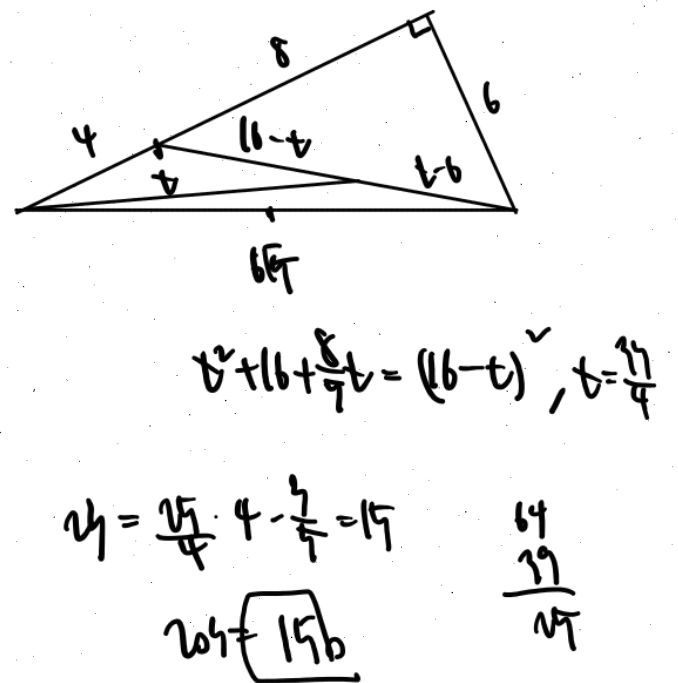 8
6
4
16-t
t
t-6
6√5
t²+16+8/5t=(16-t)², t=39/4
2S = 25/4 · 4 · 3/5 = 15
64
39
25
20S= 150